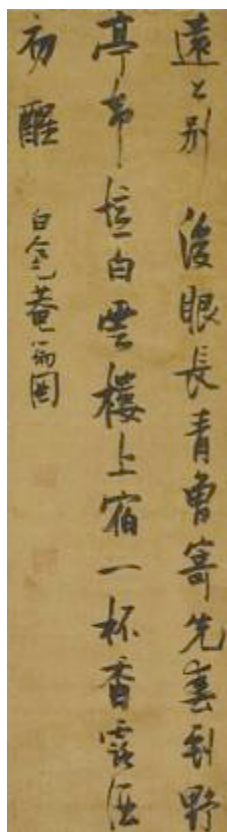 遠公別後眼長青曾寄先書到野
亭常憶白雲樓上宿一杯香露酒
初醒 白毫菴瑞圖